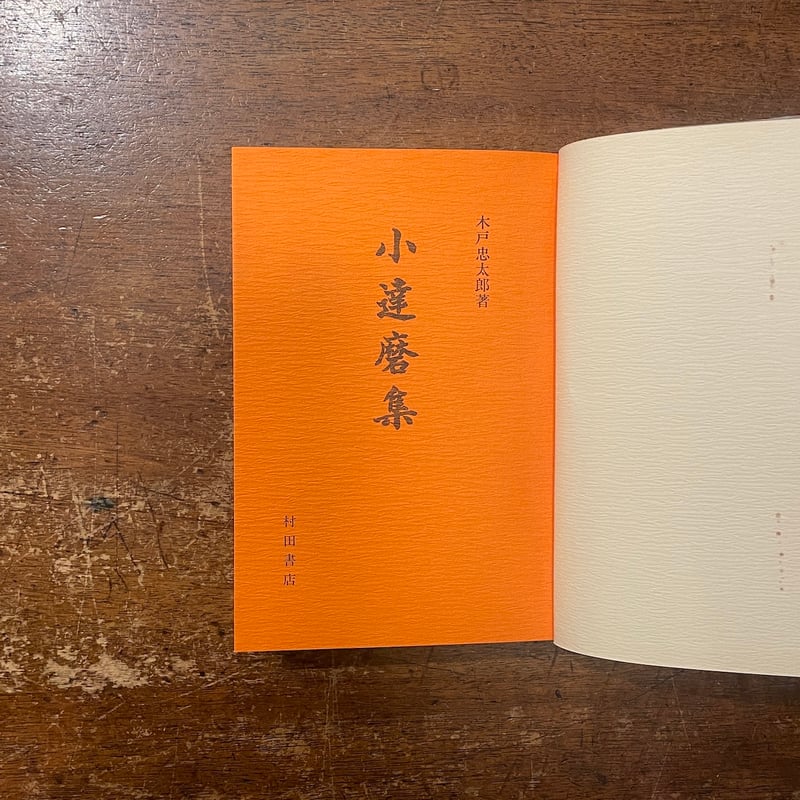 木戸忠太郎著
小達磨集
村田書店